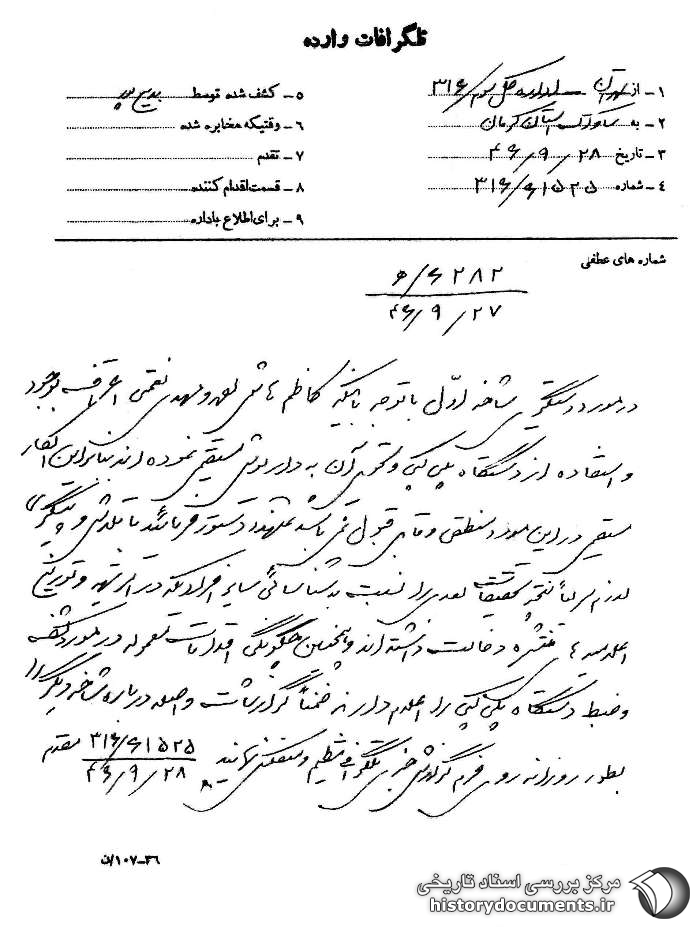 تلگرافات وارده
۱ - از تهران - اداره کل سوم ۳۱۶
۲ - به ساواک استان کرمان
۳ - تاریخ ۲۸ / ۹ / ۴۶
۴ - شماره ۳۱۶/۶۱۵۲۵
۵ - کشف شده توسط
۶ - وقتیکه مخابره شده
۷ - تقدم
۸ - قسمت اقدام کننده
۹ - برای اطلاع باداره
شماره های عطفی
۶۲۸۲/ه
۲۷ / ۹ / ۴۶
در مورد دستگیری شاخه اول با توجه باینکه کاظم هاشمی و مهدی نعمتی اعتراف بوجود
و استفاده از دستگاه پلی کپی و تحویل آن به داریوش مستقیمی نموده اند بنابراین انکار
مستقیمی در این مورد منطقی و قابل قبول نمی باشد دستور فرمائید با تلاش و پیگیری
لازم سریعاً نتیجه تحقیقات بعدی را نسبت به شناسائی سایر افرادیکه در تهیه و توزیع
اعلامیه ها منتشره دخالت داشته اند و همچنین چگونگی اقدامات معموله در مورد کشف
و ضبط دستگاه پلی کپی را اعلام دارند ضمناً گزارشات واصله درباره شاخه دیگر را
بطور روزانه روی فرم گزارش خبر تلگرافی تنظیم و منعکس نمایند ۳۱۶/۶۱۵۲۵ مقدم
۲۸ / ۹ / ۴۶
۳۶-۱۰۷/ن
مرکز بررسی اسناد تاریخی
historydocuments.ir